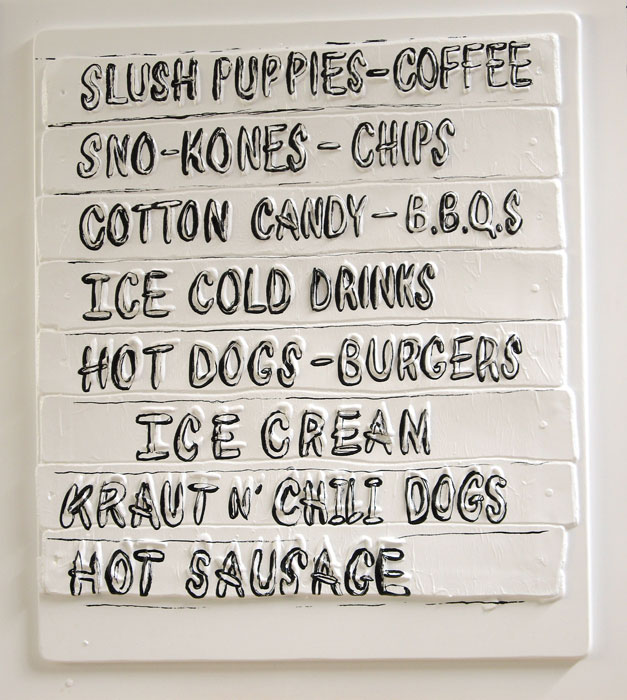 SLUSH PUPPIES-COFFEE
SNO-KONES - CHIPS
COTTON CANDY - B.B.Q.S
ICE COLD DRINKS
HOT DOGS - BURGERS
ICE CREAM
KRAUT N' CHILI DOGS
HOT SAUSAGE